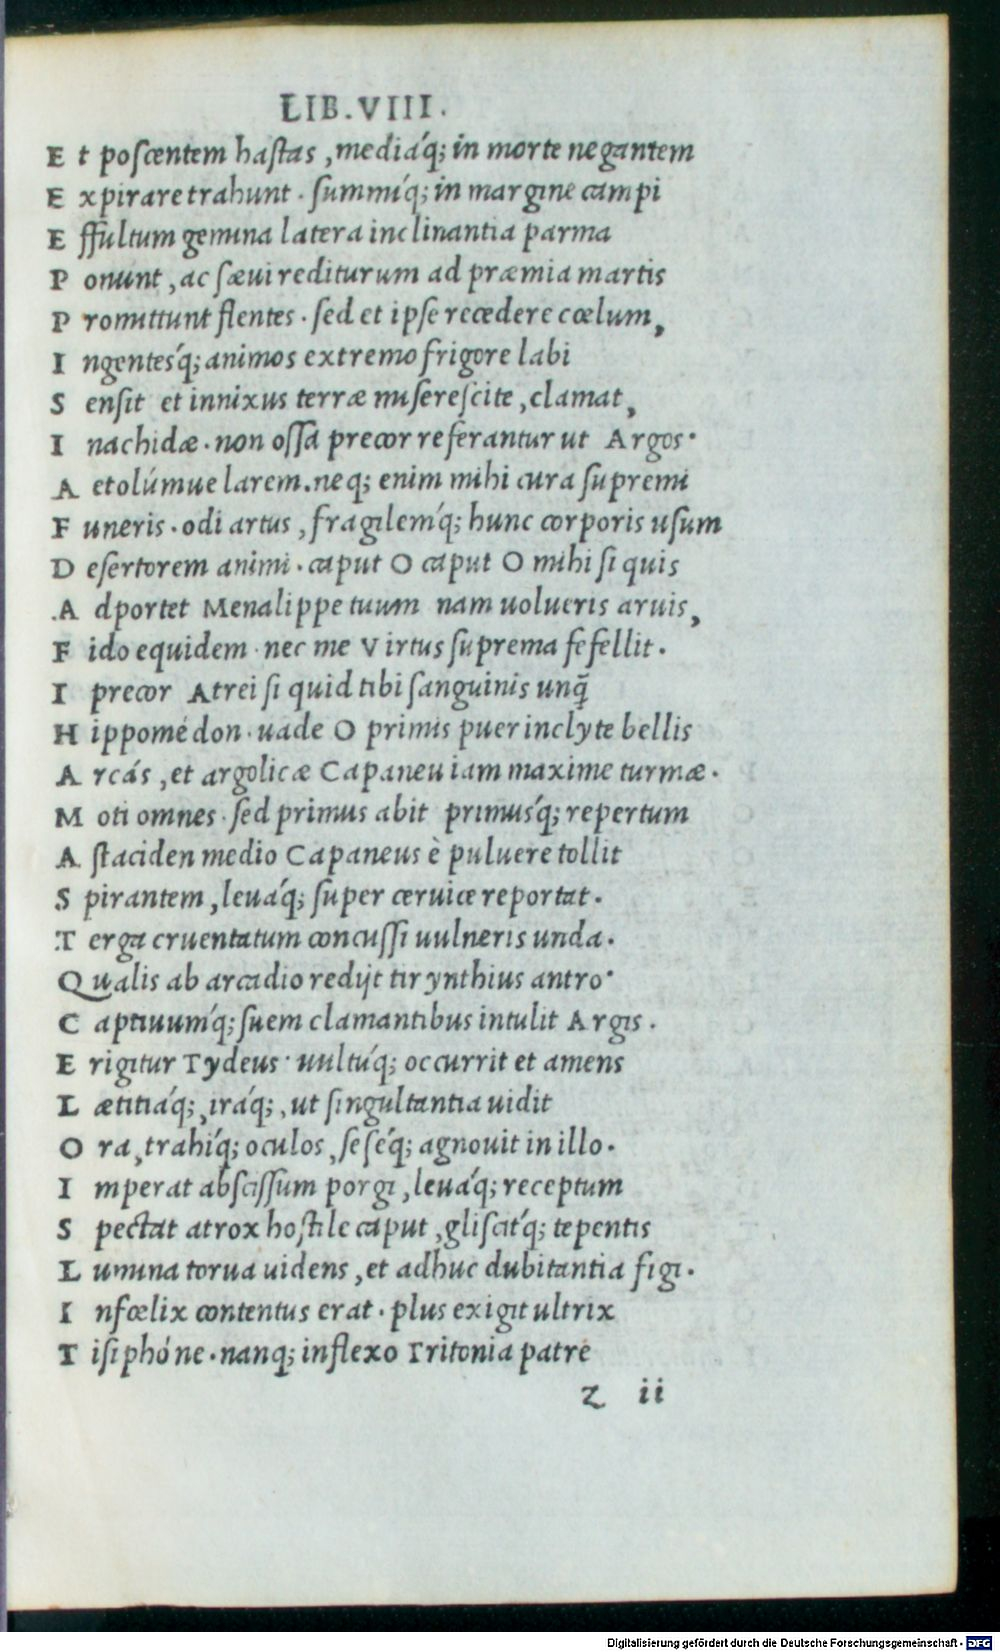 LIB.VIII.
E t poscentem hastas, mediáq; in morte negantem
E xpirare trahunt. summíq; in margine campi
E ffultum gemina latera inclinantia parma
P onunt, ac sæui rediturum ad præmia martis
P romittunt flentes. sed et ipse recedere cœlum,
I ngentesq́; animos extremo frigore labi
S ensit et innixus terræ miserescite, clamat,
I nachidæ. non ossa precor referantur ut Argos.
A etolúmue larem. neq; enim mihi cura supremi
F uneris. odi artus, fragilemq́; hunc corporis usum
D esertorem animi. caput O caput O mihi si quis
A dportet Menalippe tuum nam uolueris aruis,
F ido equidem. nec me Virtus suprema fefellit.
I precor Atrei si quid tibi sanguinis unq̃
H ippomédon. uade O primis puer inclyte bellis
A rcás, et argolicæ Capaneu iam maxime turmæ.
M oti omnes. sed primus abit primusq́; repertum
A staciden medio Capaneus è puluere tollit
S pirantem, leuáq; super ceruice reportat.
T erga cruentatum concussi uulneris unda.
Q ualis ab arcadio redijt tirynthius antro.
C aptiuumq́; suem clamantibus intulit Argis.
E rigitur Tydeus. uultúq; occurrit et amens
L ætitiáq;, iráq;, ut singultantia uidit
O ra, trahíq; oculos, seséq; agnouit in illo.
I mperat abscissum porgi, leuáq; receptum
S pectat atrox hostile caput, gliscitq́; tepentis
L umina torua uidens, et adhuc dubitantia figi.
I nfœlix contentus erat. plus exigit ultrix
T isiphóne. nanq; inflexo Tritonia patre
z ii
Digitalisierung gefördert durch die Deutsche Forschungsgemeinschaft - DFG